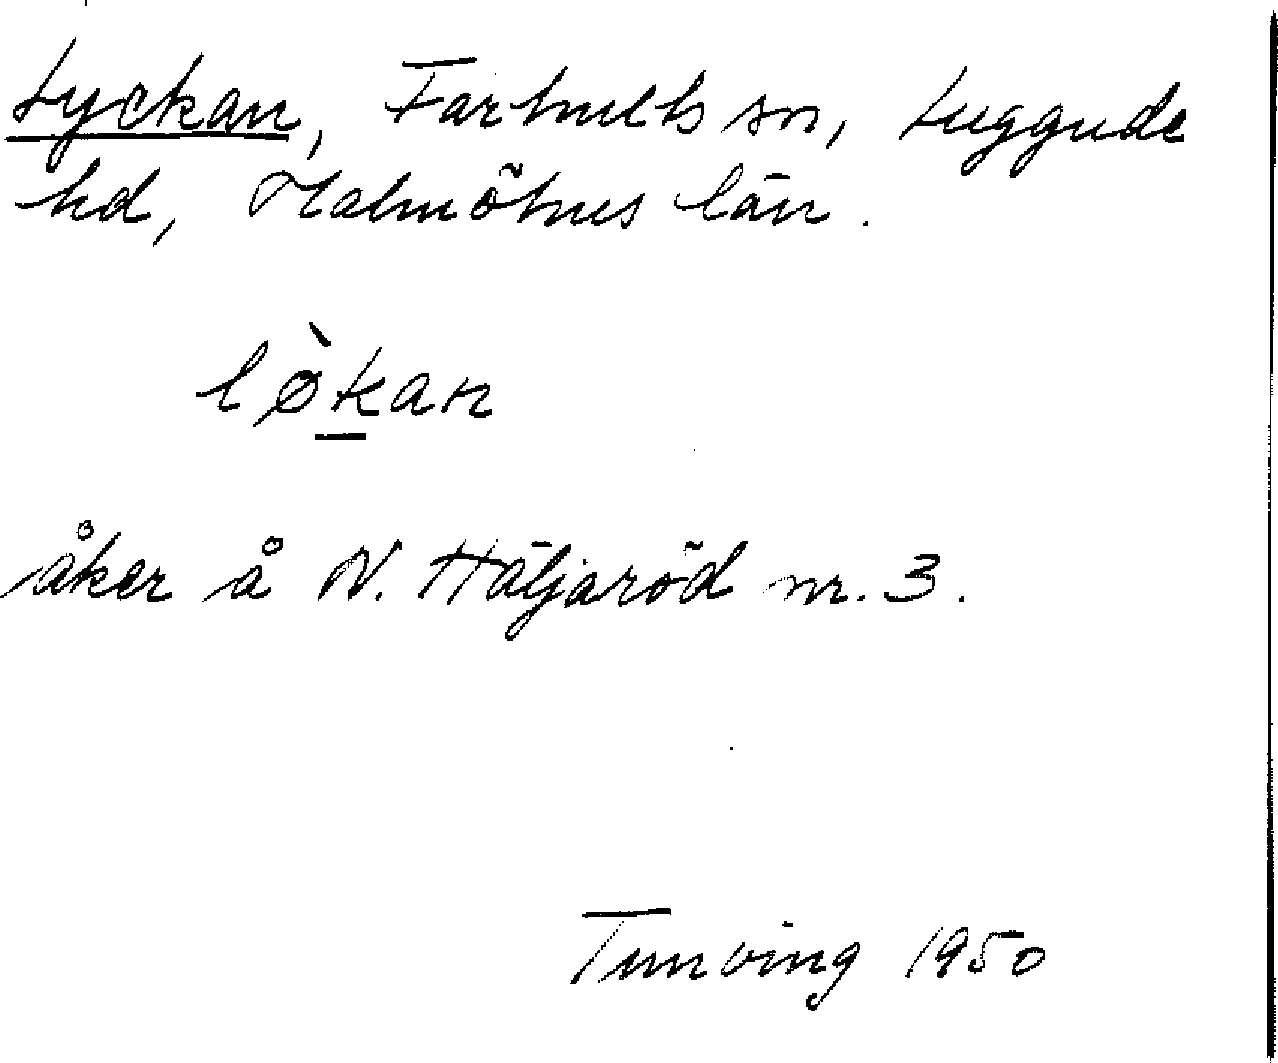 Lyckan, Farhults sn, Luggude
hd, Malmöhus län.
lø̀k̲an
åker å N. Häljaröd nr. 3.
Tunving 1950